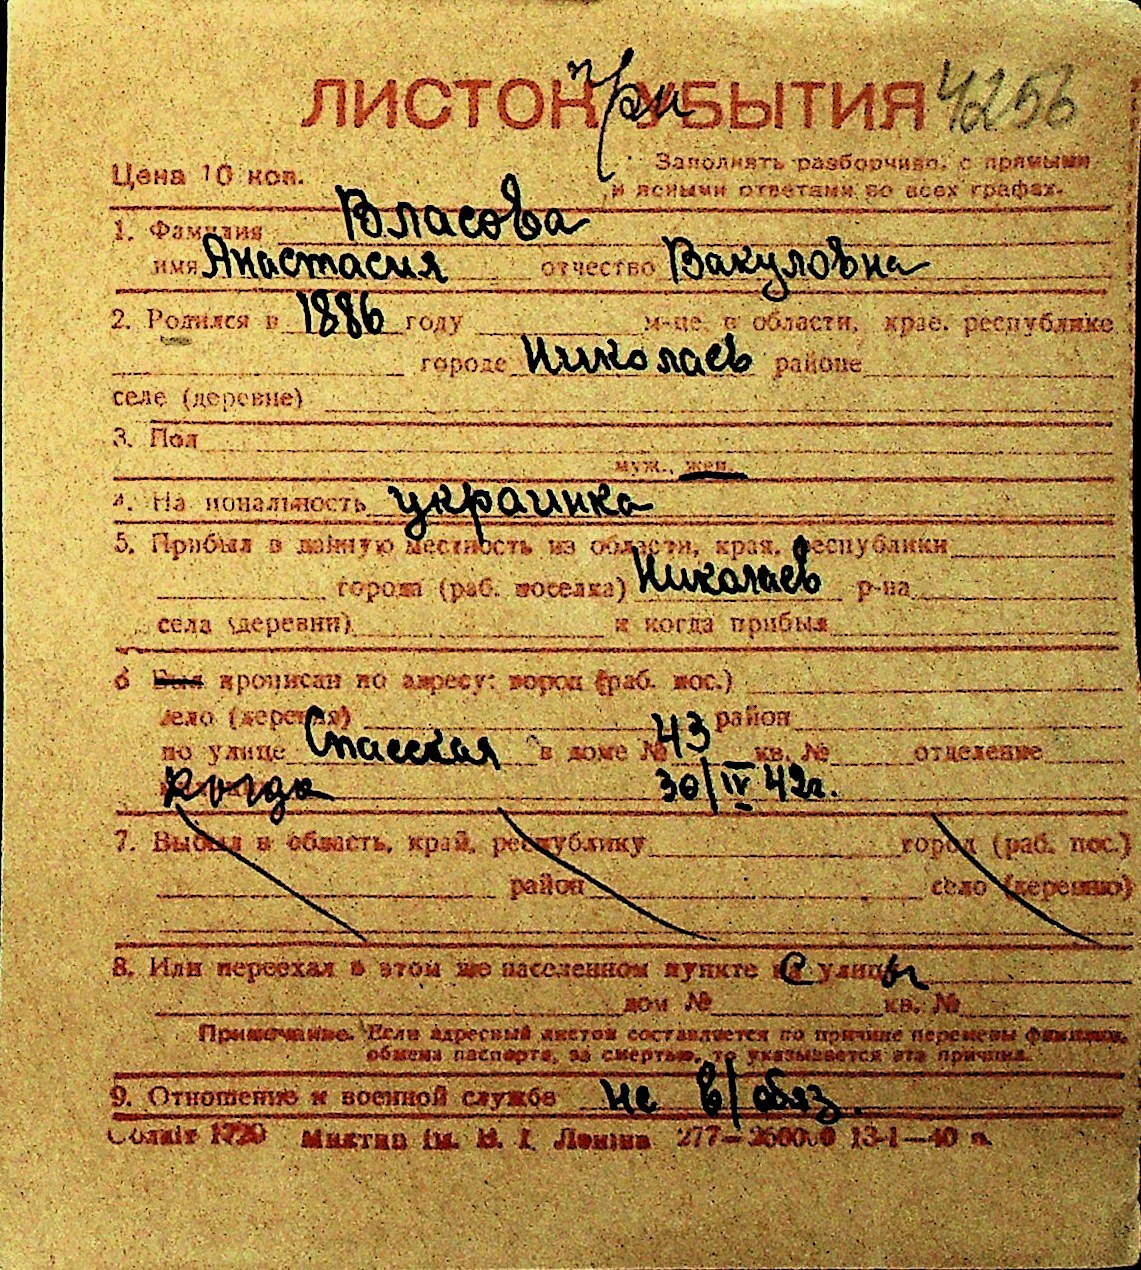 ЛИСТОК при УБЫТИЯ 4256
Цена 10 коп.
Заполнять разборчиво, с прямыми
и ясными ответами во всех графах.
1. Фамилия Власова
имя Анастасия отчество Вакуловна
2. Родился в 1886 году м-це в области, крае, республике
городе Николаев районе
селе (деревне)
3. Пол
муж., жен.
4. Национальность украинка
5. Прибыл в данную местность из области, края, республики
города (раб. поселка) Николаев р-на
села (деревни) и когда прибыл
6 Был прописан по адресу: город (раб. пос.)
село (деревня) район
по улице Спасская в доме № 43 кв. № отделение
когда 30/IV 42г.
7. Выбыл в область, край, республику город (раб. пос.)
район село (деревню)
8. Или переехал в этом же населенном пункте с улицы
дом № кв. №
Примечание. Если адресный листок составляется по причине перемены фамилии,
обмена паспорта, за смертью, то указывается эта причина.
9. Отношение к военной службе не в/обяз.
Облліт 1720 ім. В. І. Леніна 277—260000 13-1—40 п.